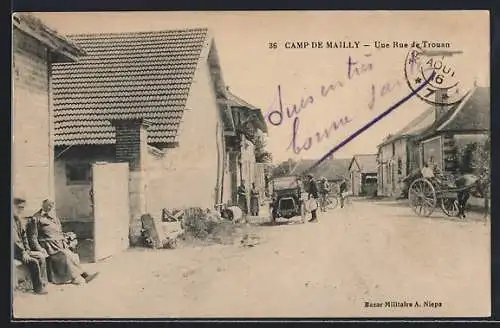 36 CAMP DE MAILLY — Une Rue de Trouan
AOUT
16
Suis en très
bonne santé
Bazar Militaire A. Nieps